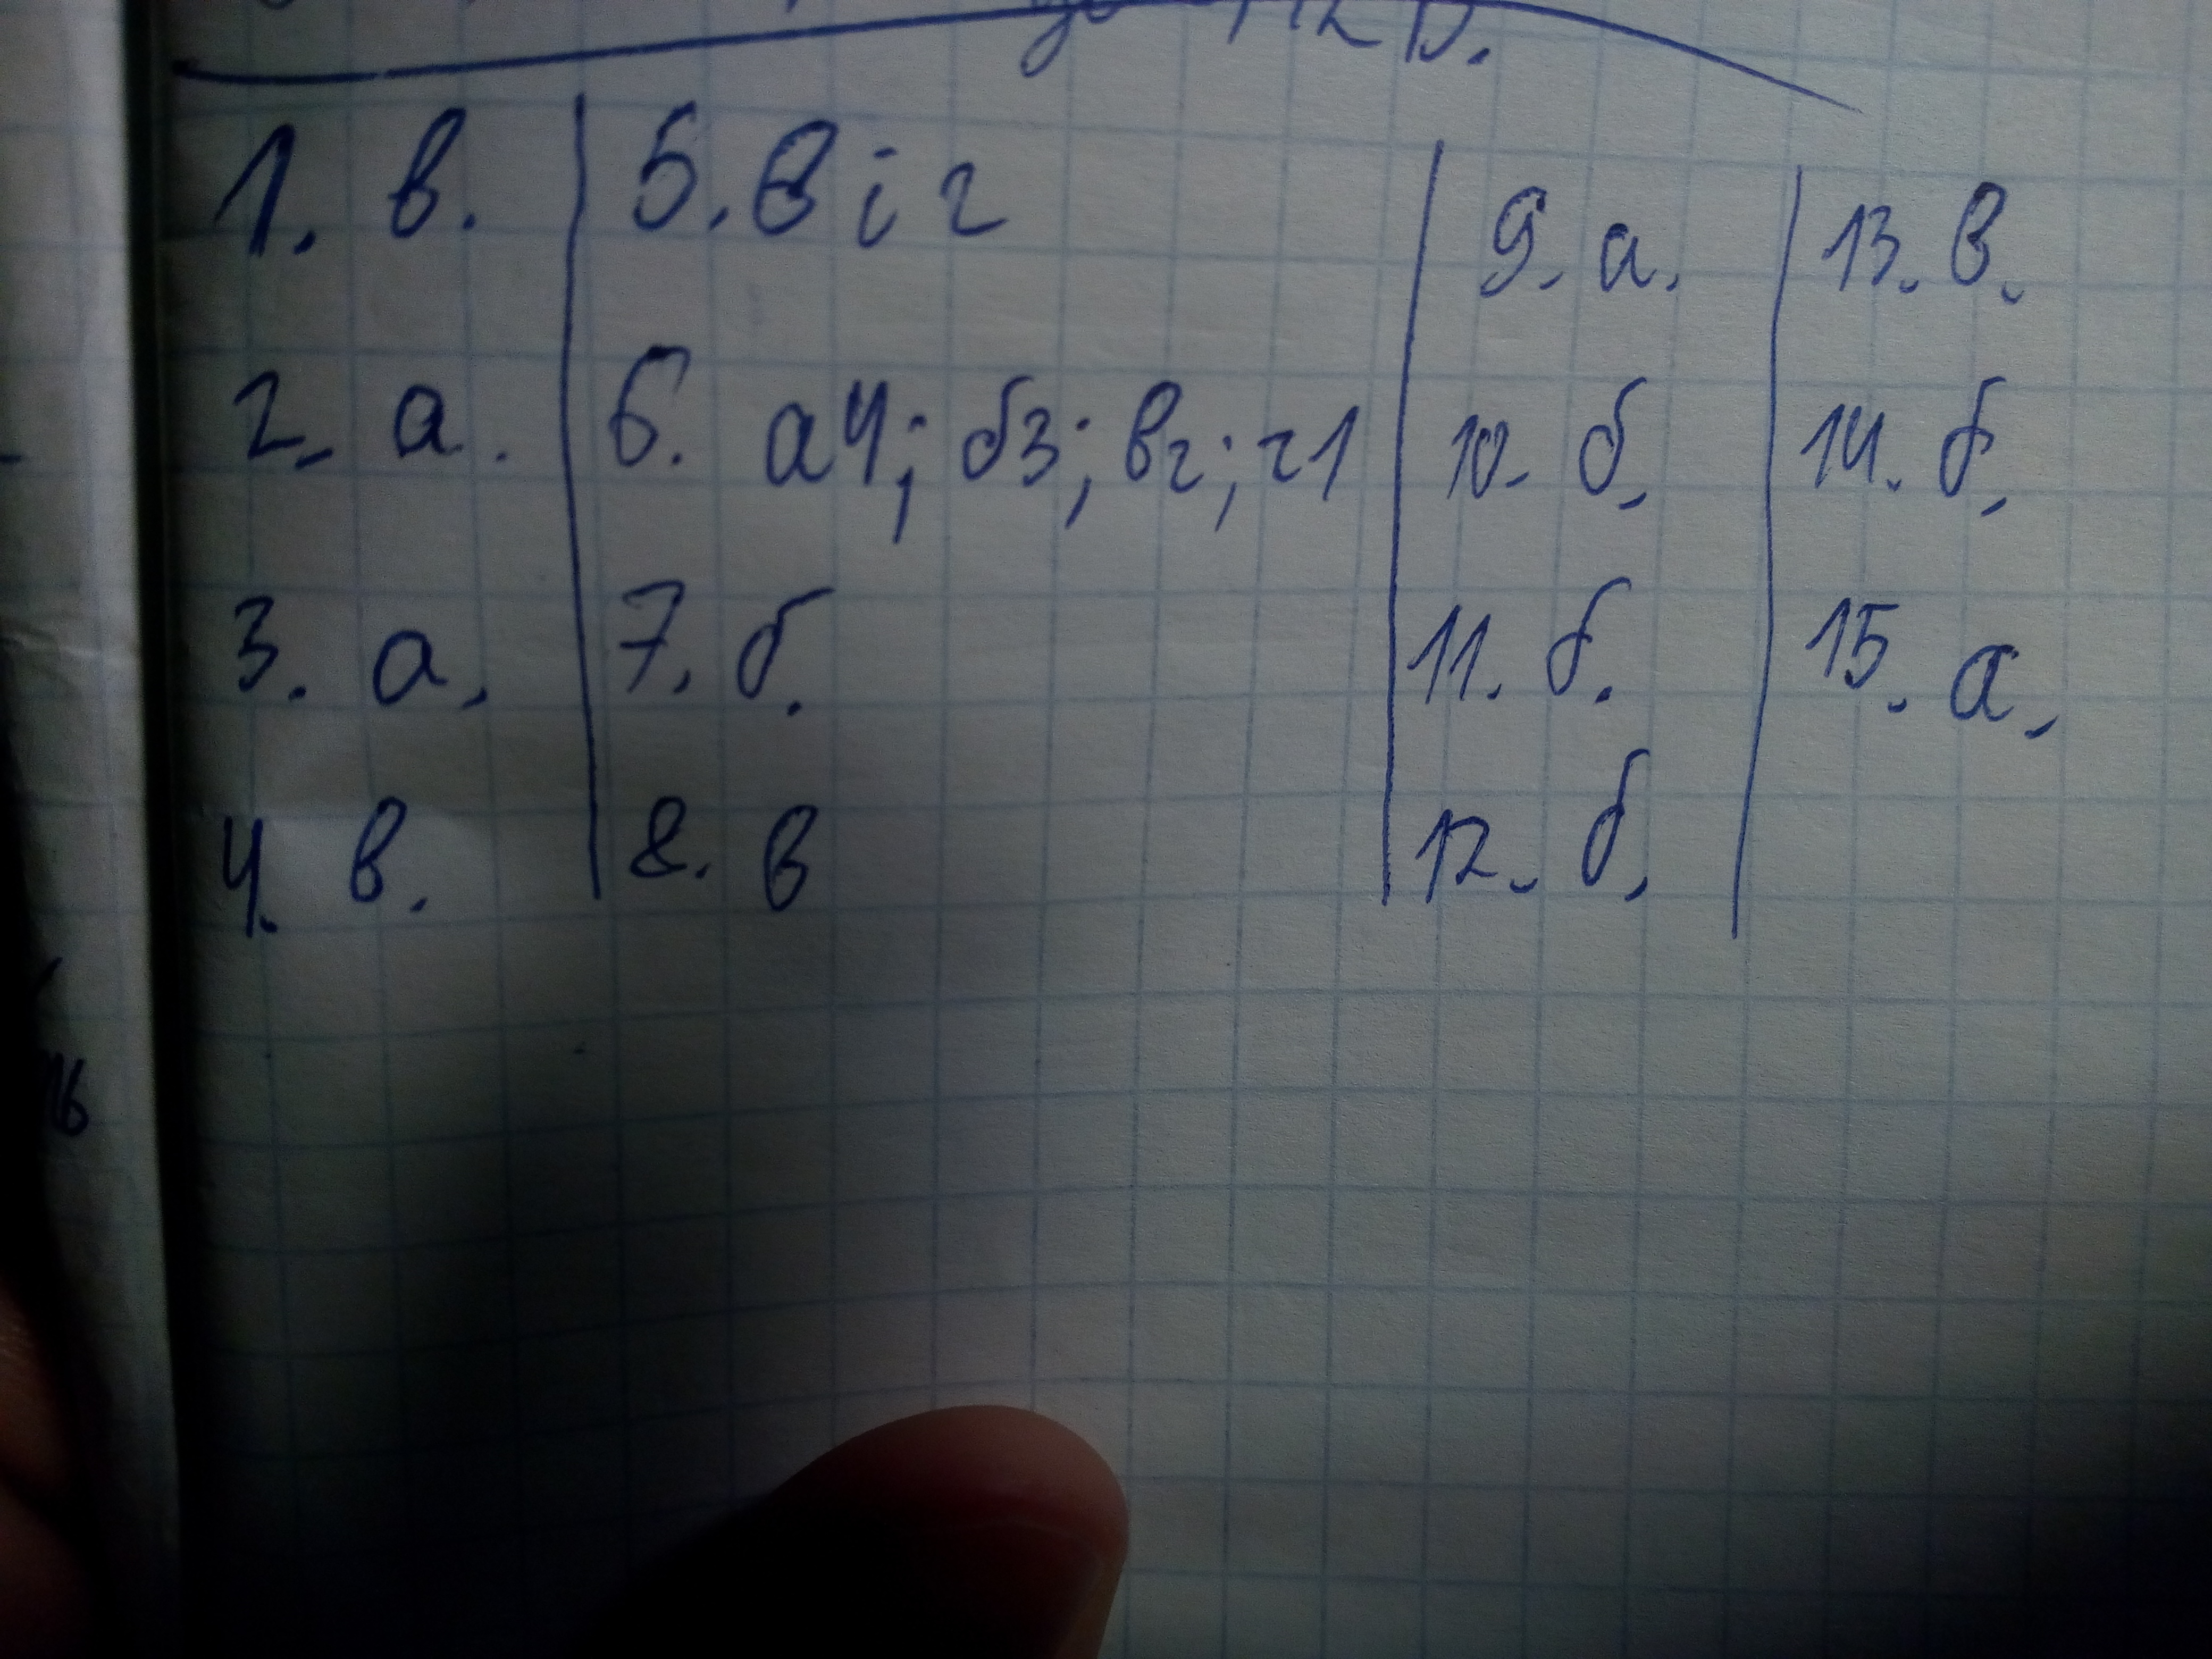 1. в.
2. а.
3. а.
4. в.
5. в і г
6. а4; б3; в2; г1
7. б.
8. в
9. а.
10. б.
11. б.
12. б.
13. в.
14. б.
15. а.